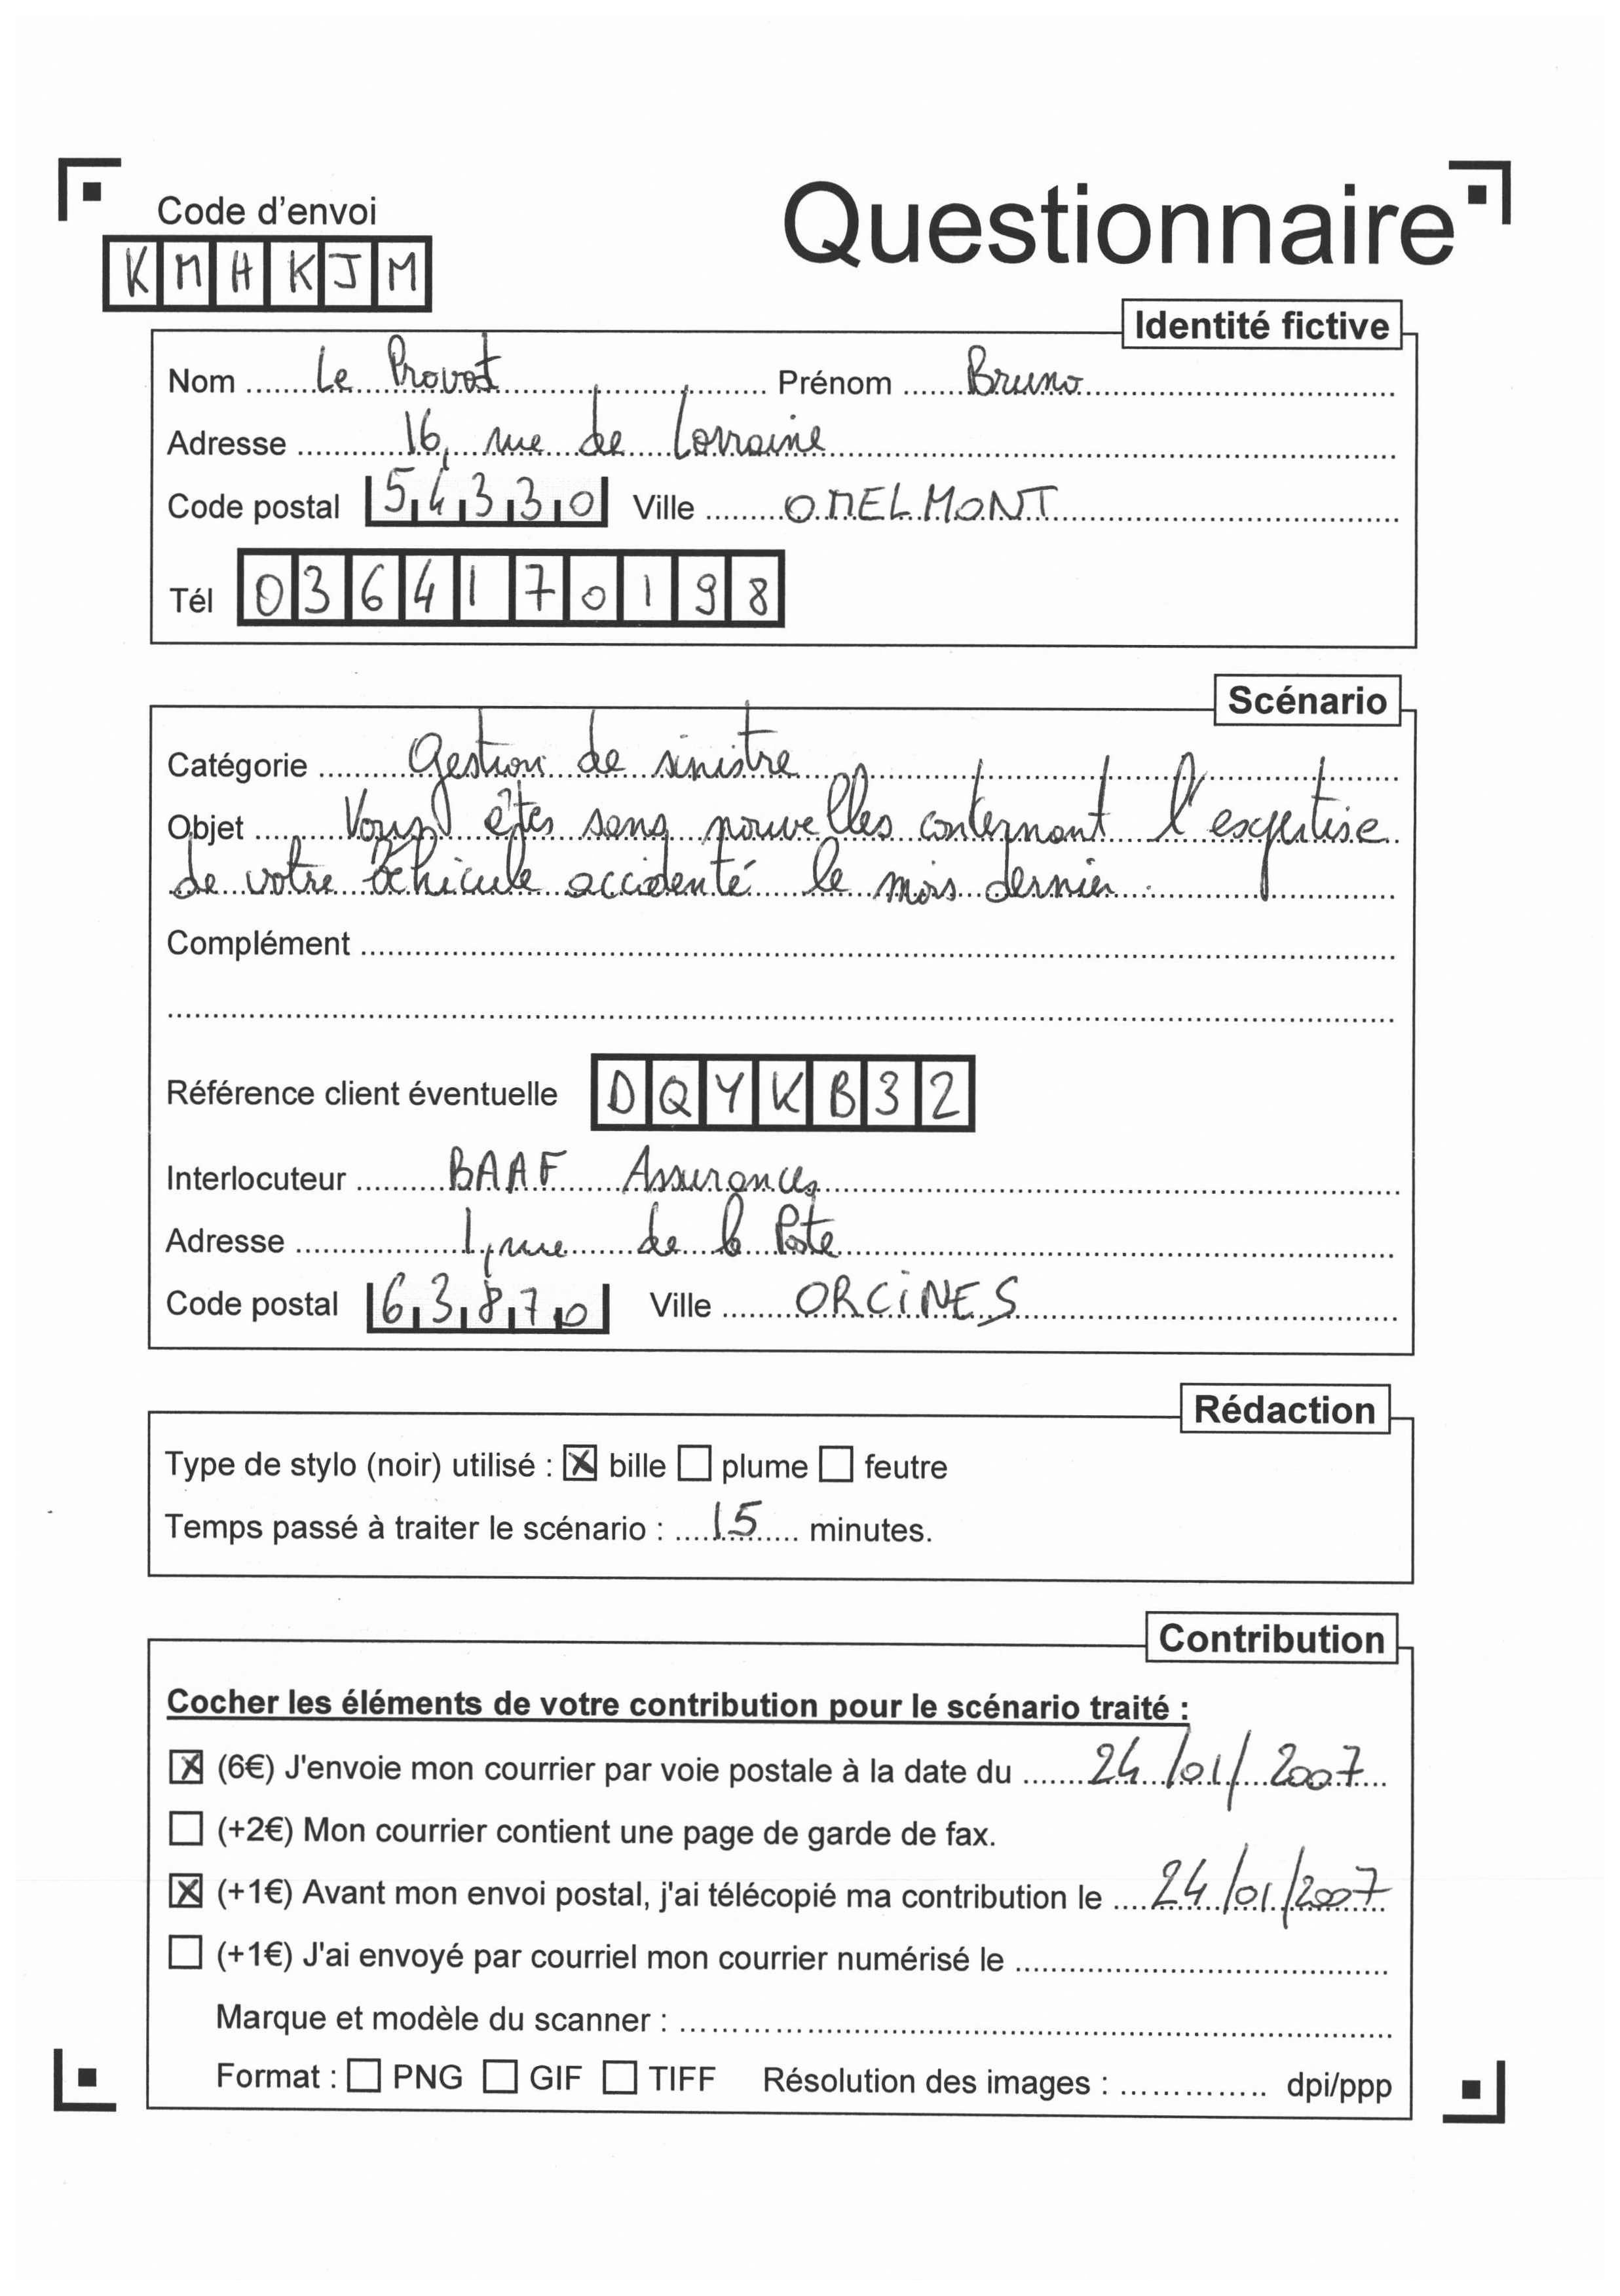 Code d'envoi
Questionnaire
KMHKJM
Identité fictive
Nom ....... Le Provost ....... Prénom ....... Bruno .......
Adresse ....... 16, rue de Lorraine .......
Code postal 54330 Ville ....... OMELMONT .......
Tél 0364170198
Scénario
Catégorie ....... Gestion de sinistre .......
Objet ....... Vous êtes sans nouvelles concernant l'expertise
de votre véhicule accidenté le mois dernier.
Complément .......
Référence client éventuelle DQYKB32
Interlocuteur ....... BAAF Assurances .......
Adresse ....... 1, rue de la Poste .......
Code postal 63870 Ville ....... ORCINES .......
Rédaction
Type de stylo (noir) utilisé : ☒ bille ☐ plume ☐ feutre
Temps passé à traiter le scénario : .... 15 .... minutes.
Contribution
Cocher les éléments de votre contribution pour le scénario traité :
☒ (6€) J'envoie mon courrier par voie postale à la date du ....... 24/01/2007 ...
☐ (+2€) Mon courrier contient une page de garde de fax.
☒ (+1€) Avant mon envoi postal, j'ai télécopié ma contribution le .... 24/01/2007
☐ (+1€) J'ai envoyé par courriel mon courrier numérisé le .......
Marque et modèle du scanner : .......
Format : ☐ PNG ☐ GIF ☐ TIFF Résolution des images : .............. dpi/ppp